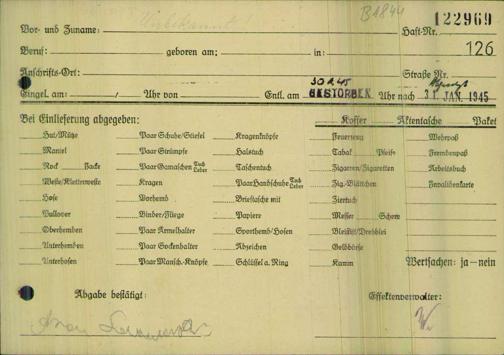 Unbekannt! B1844 122969
Vor- und Zuname: Haft-Nr.
Beruf: geboren am: in: 126
Anschrifts-Ort: Straße Nr.
Eingel. am: / Uhr von Entl. am 30.1.45 GESTORBEN Uhr nach 31. JAN. 1945
Bei Einlieferung abgegeben: Koffer Aktentasche Paket
Hut/Mütze Paar Schuhe/Stiefel Kragenknöpfe Feuerzeug Wehrpaß
Mantel Paar Strümpfe Halstuch Tabak Pfeife Fremdenpaß
Rock Jacke Paar Gamaschen Tuch Leder Taschentuch Zigarren/Zigaretten Arbeitsbuch
Weste/Kletterweste Kragen Paar Handschuhe Tuch Leder Zig.-Blättchen Invalidenkarte
Hose Vorhemd Brieftasche mit Ziertuch
Pullover Binder/Fliege Papiere Messer Schere
Oberhemden Paar Ärmelhalter Sporthemd/Hosen Bleistift/Drehblei
Unterhemden Paar Sockenhalter Abzeichen Geldbörse
Unterhosen Paar Mansch.-Knöpfe Schlüssel a. Ring Kamm Wertsachen: ja—nein
Abgabe bestätigt: Effektenverwalter: